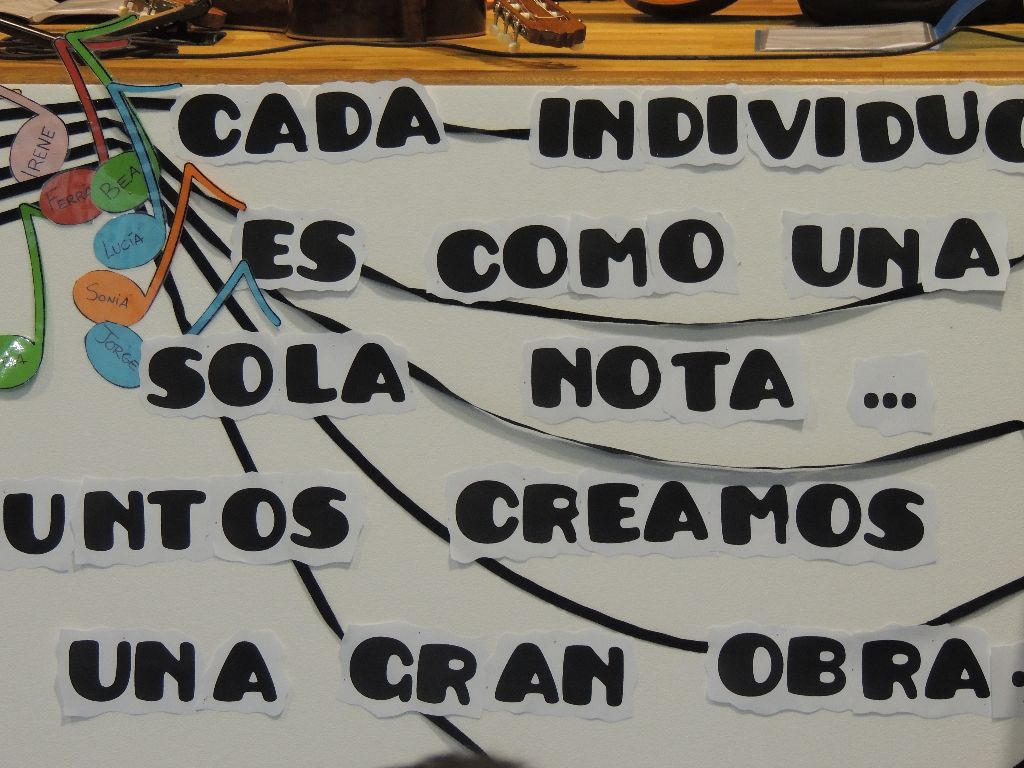 CADA INDIVIDUO
ES COMO UNA
SOLA NOTA ...
UNTOS CREAMOS
UNA GRAN OBRA.
IRENE
FERRA
BEA
LUCÍA
SONIA
JORGE